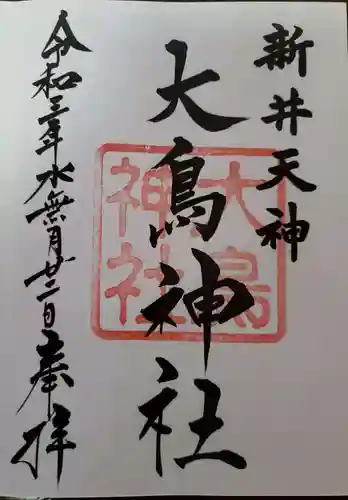 新井天神
大鳥神社
大鳥神社
令和三年水無月廿二日奉拝